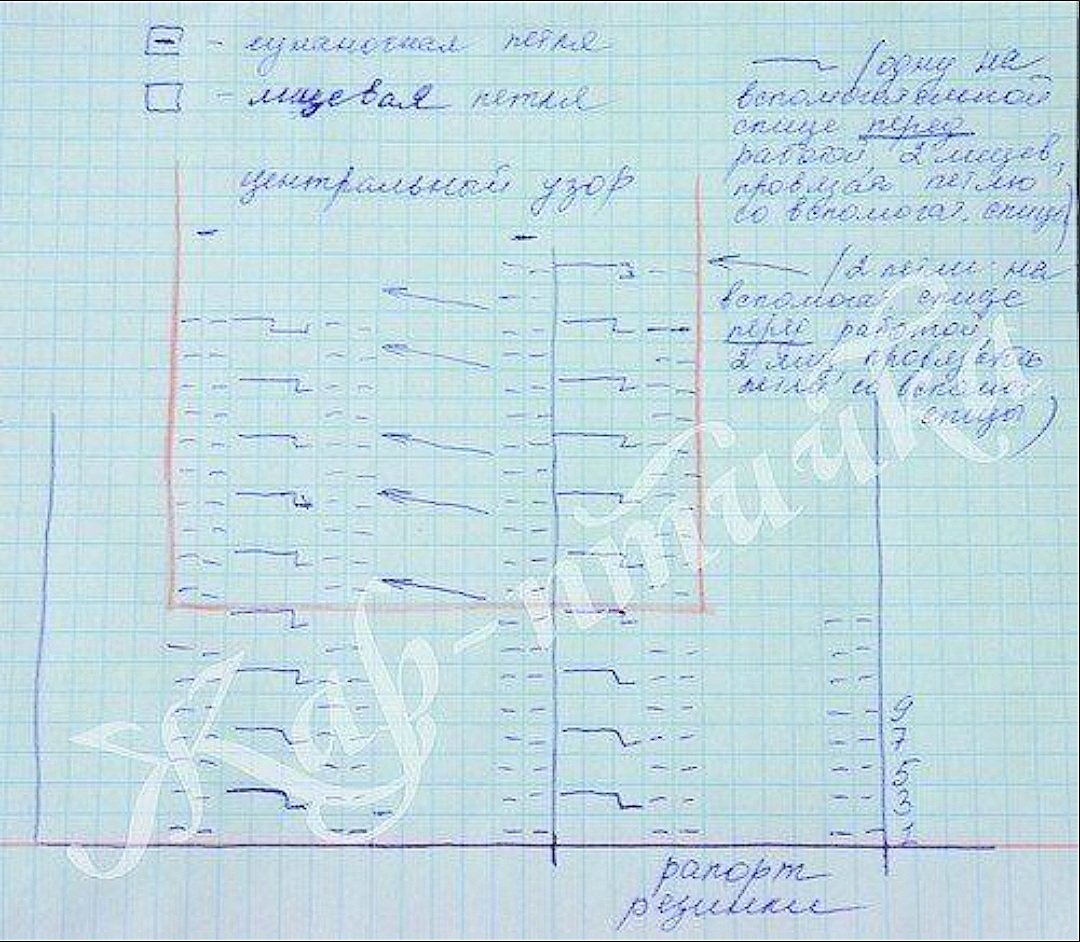 - изнаночная петля
- лицевая петля
(одну на
вспомогательной
спице перед
работой, 2 лицев,
провязать петлю
со вспомогат. спицы)
центральный узор
(2 петли на
вспомогат спице
перед работой
2 лиц, провязать
петли со вспомог
спицы)
9
7
5
3
1
рапорт
резинки
Кар-птицйка